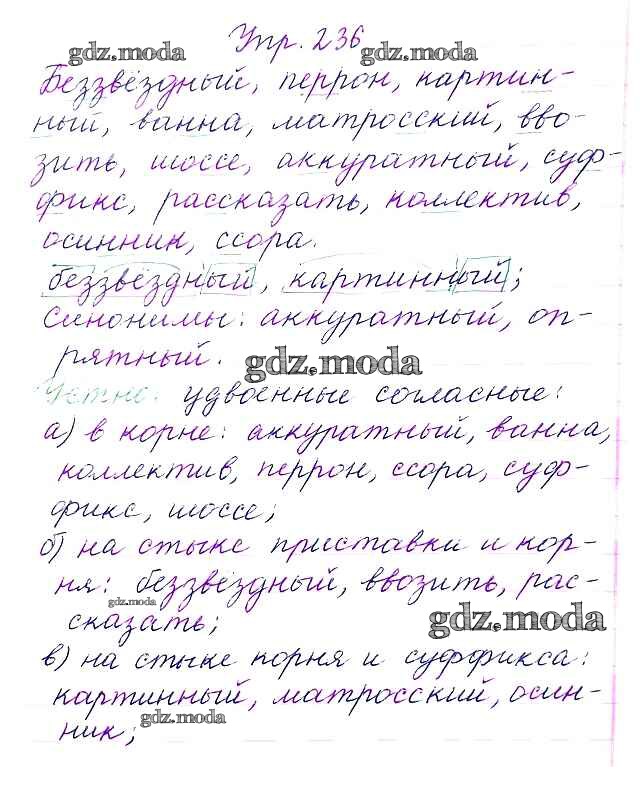 Упр. 236
gdz.moda gdz.moda
Беззвёздный, перрон, картин-
ный, ванна, матросский, вво-
зить, шоссе, аккуратный, суф-
фикс, рассказать, коллектив,
осинник, ссора.
беззвёздный, картинный;
Синонимы: аккуратный, оп-
рятный.
gdz.moda
Устно: удвоенные согласные:
а) в корне: аккуратный, ванна,
коллектив, перрон, ссора, суф-
фикс, шоссе;
б) на стыке приставки и кор-
ня: беззвёздный, ввозить, рас-
gdz.moda
сказать;
gdz.moda
в) на стыке корня и суффикса:
картинный, матросский, осин-
gdz.moda
ник;